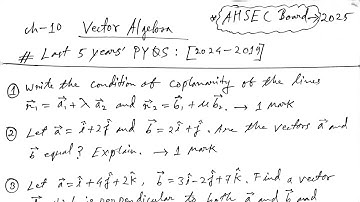 ch-10 Vector Algebra
AHSEC Board → 2025
# Last 5 years' PYQS : [2024-2019]
① Write the condition of coplanarity of the lines
r⃗₁ = a⃗₁ + λ a⃗₂ and r⃗₂ = b⃗₁ + μ b⃗₂. → 1 mark
② Let a⃗ = î + 2ĵ and b⃗ = 2î + ĵ. Are the vectors a⃗ and
b⃗ equal? Explain. → 1 mark
③ Let a⃗ = î + 4ĵ + 2k̂, b⃗ = 3î - 2ĵ + 7k̂. Find a vector
which is perpendicular to both a⃗ and b⃗ and